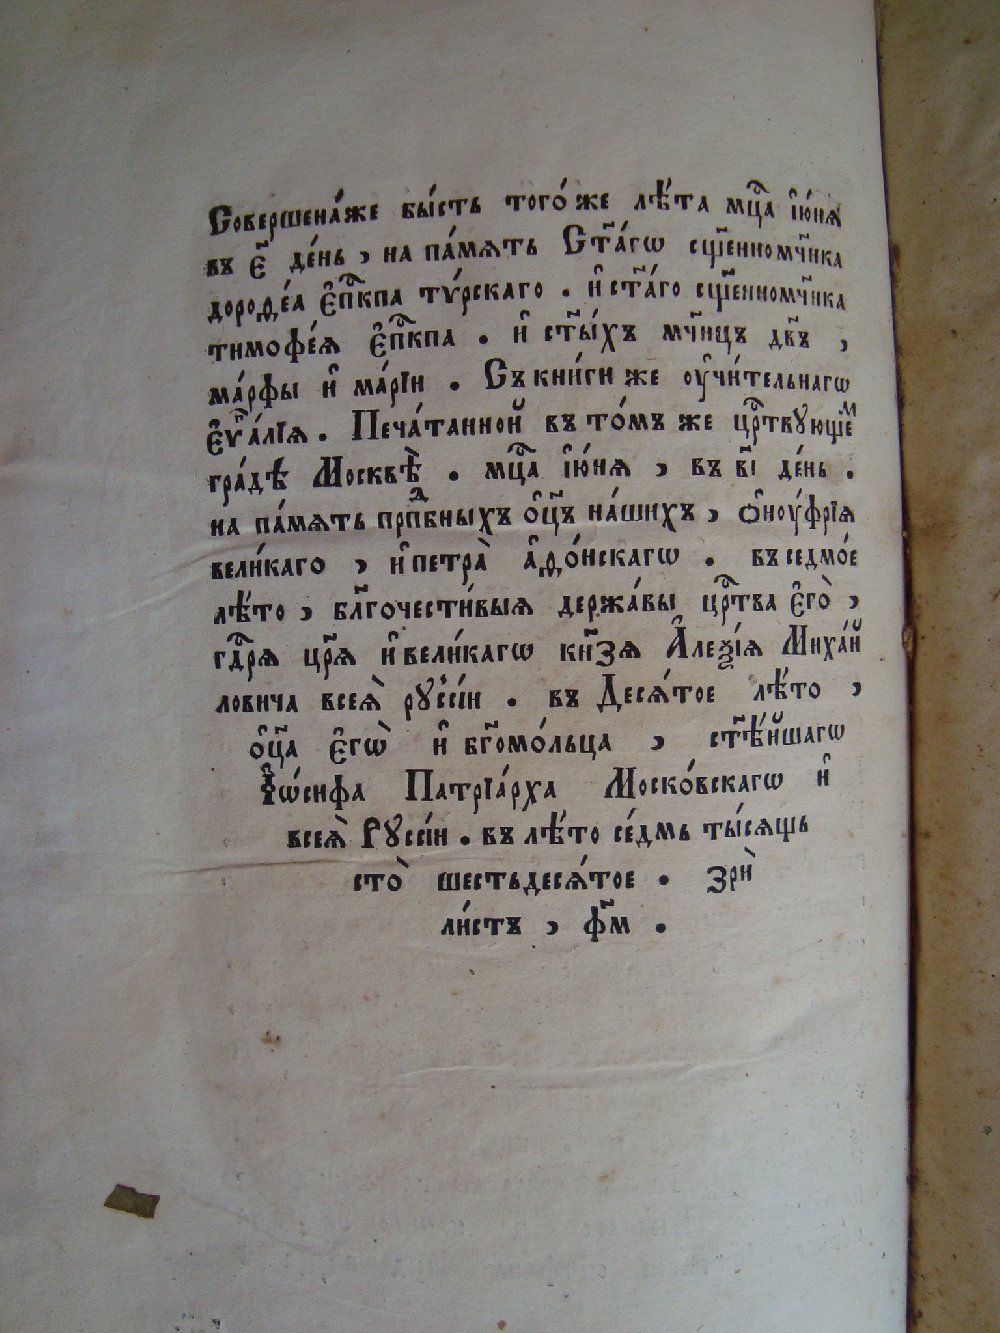 Соверше́на́же бы́сть того́ же лѣ́та мц҃а і҆ю́нѧ
въ є҃ де́нь , на па́мѧть Ст҃а́гѡ сщ҃енномч҃ника
дороѳе́а є҆пⷭ҇кпа ту́рскаго . и҆ ст҃а́го сщ҃енномч҃ника
тимоѳе́ѧ є҆пⷭ҇кпа . и҆ ст҃ы́хъ мч҃ницъ дв҃ъ ,
ма́рфы и҆ ма́рїи . Съ кни́ги же оу҆чи́тельнагѡ
є҆ѵⷢ҇а́лїѧ . Печа́танной въ то́мъ же црⷭ҇твꙋющеⷨ
гра́дѣ Москвѣ̀ . мцⷭ҇а і҆ю́нѧ , въ в҃і де́нь .
на па́мѧть прпⷣбныхъ ѻ҆ц҃ъ на́шихъ , ѻ҆ноу́фрїѧ
вели́каго , и҆ петра̀ а҆ѳо́нскагѡ . въ седмо́е
лѣ́то , бл҃гочести́выѧ держа́вы црⷭ҇тва є҆го̀ ,
гдⷭ҇рѧ цр҃ѧ и҆ вели́кагѡ кн҃зѧ А҆леѯі́ѧ Миха́й
ловича всеѧ̀ рꙋсі́и . въ Десѧ́тое лѣ́то ,
ѻ҆ц҃а є҆гѡ̀ и҆ бг҃омо́льца , ст҃ѣ́йшагѡ
І҆ѡ́сифа Патрїа́рха Моско́вскагѡ и҆
всеѧ̀ Рꙋссі́и . въ лѣ́то се́дмь ты́сѧщь
сто̀ шестьдесѧ́тое . зрѝ
ли́стъ , ф҃м .